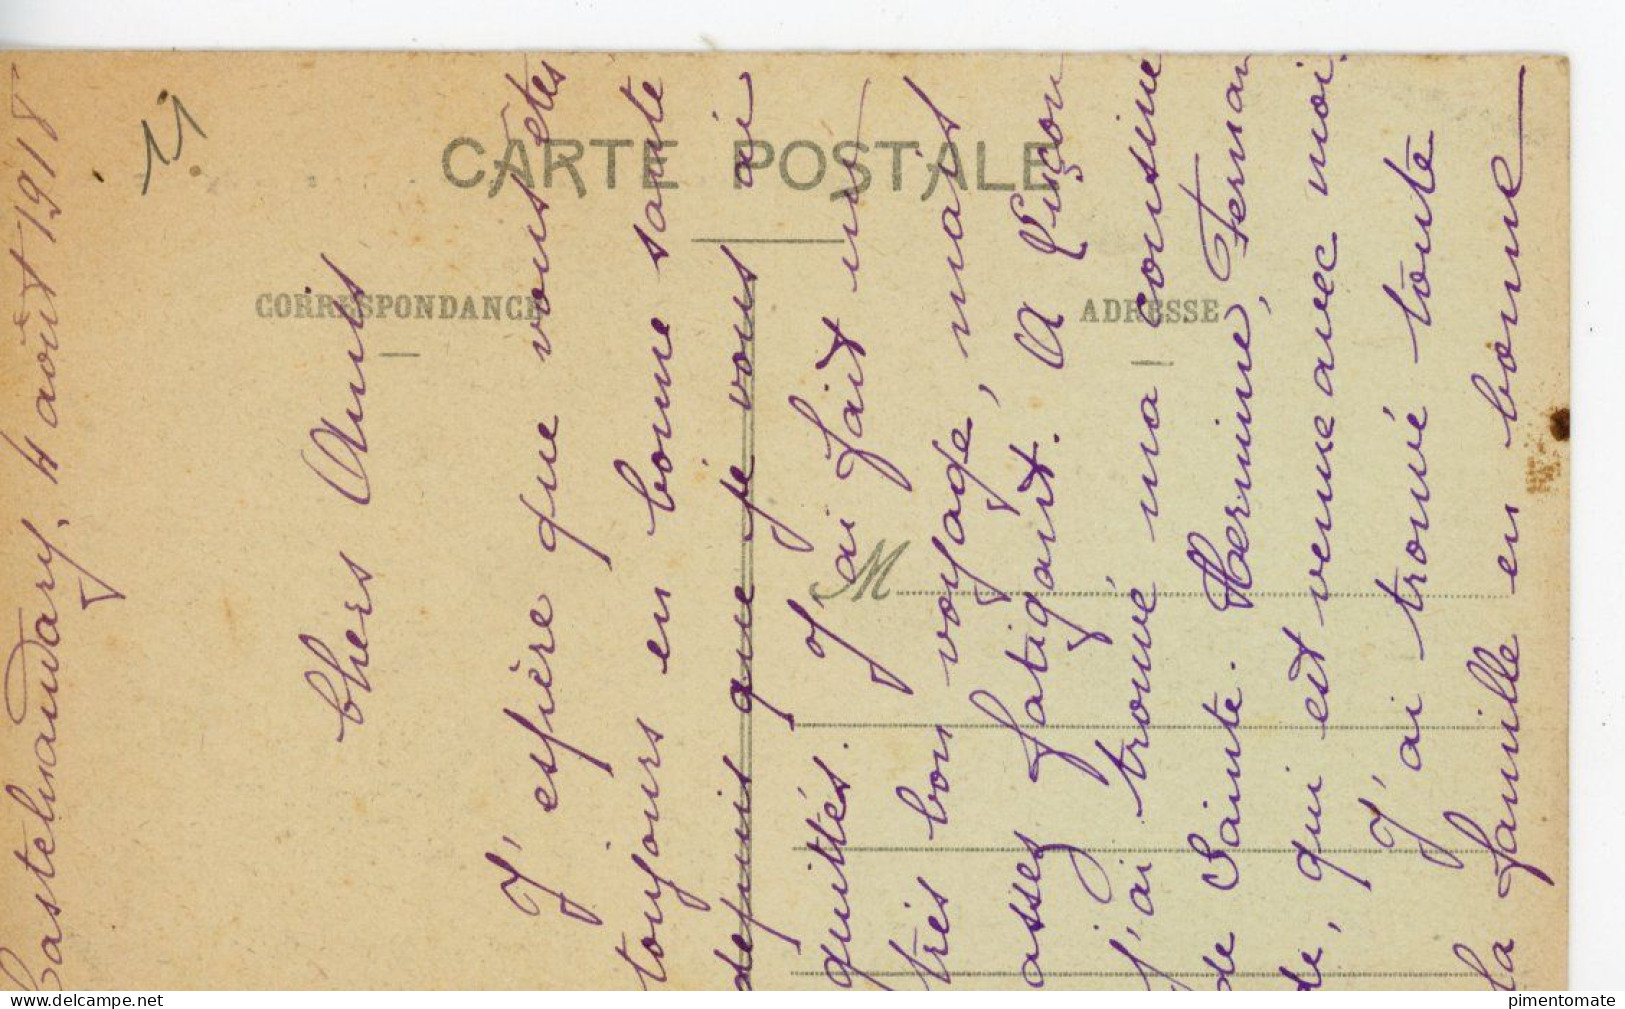 Castelnaudary, 4 août 1918
11
Chers Amis
J'espère que vous êtes
toujours en bonne santé
depuis que je vous ai
quittés. J'ai fait un
très bon voyage, mais
assez fatigant. A Luçon
j'ai trouvé ma cousine
de Sainte. Hermine, Fernan
de, qui est venue avec moi.
J'ai trouvé toute
la famille en bonne
CARTE POSTALE
CORRESPONDANCE
ADRESSE
M
www.delcampe.net
pimentomate